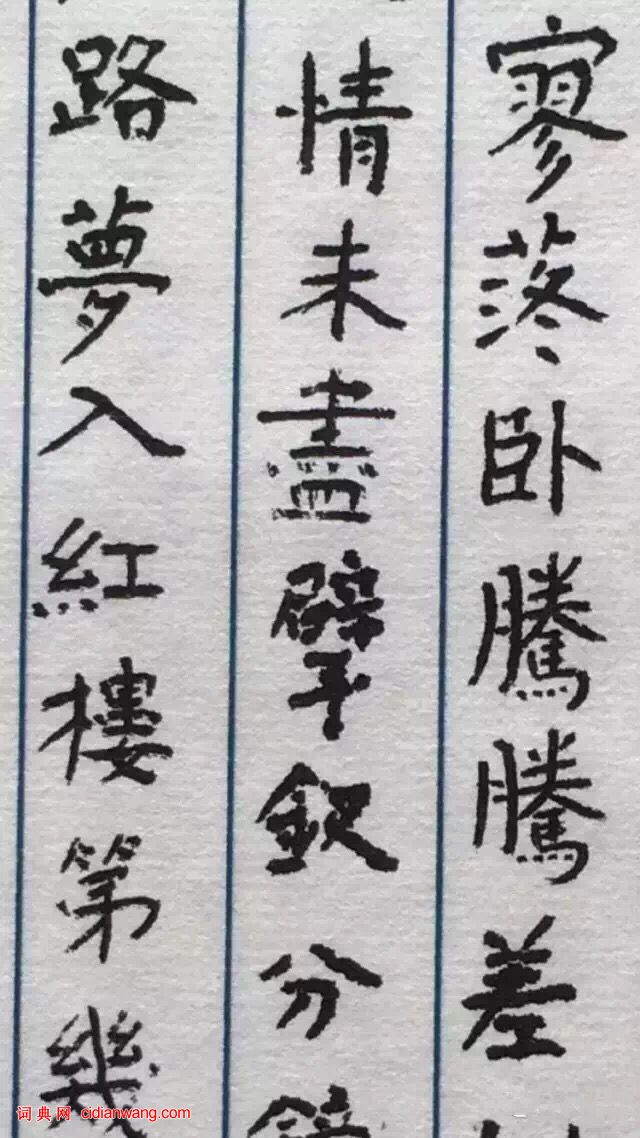 寥落卧騰騰差
情未盡擘釵分
路夢入紅樓第幾
词典网 cidianwang.com